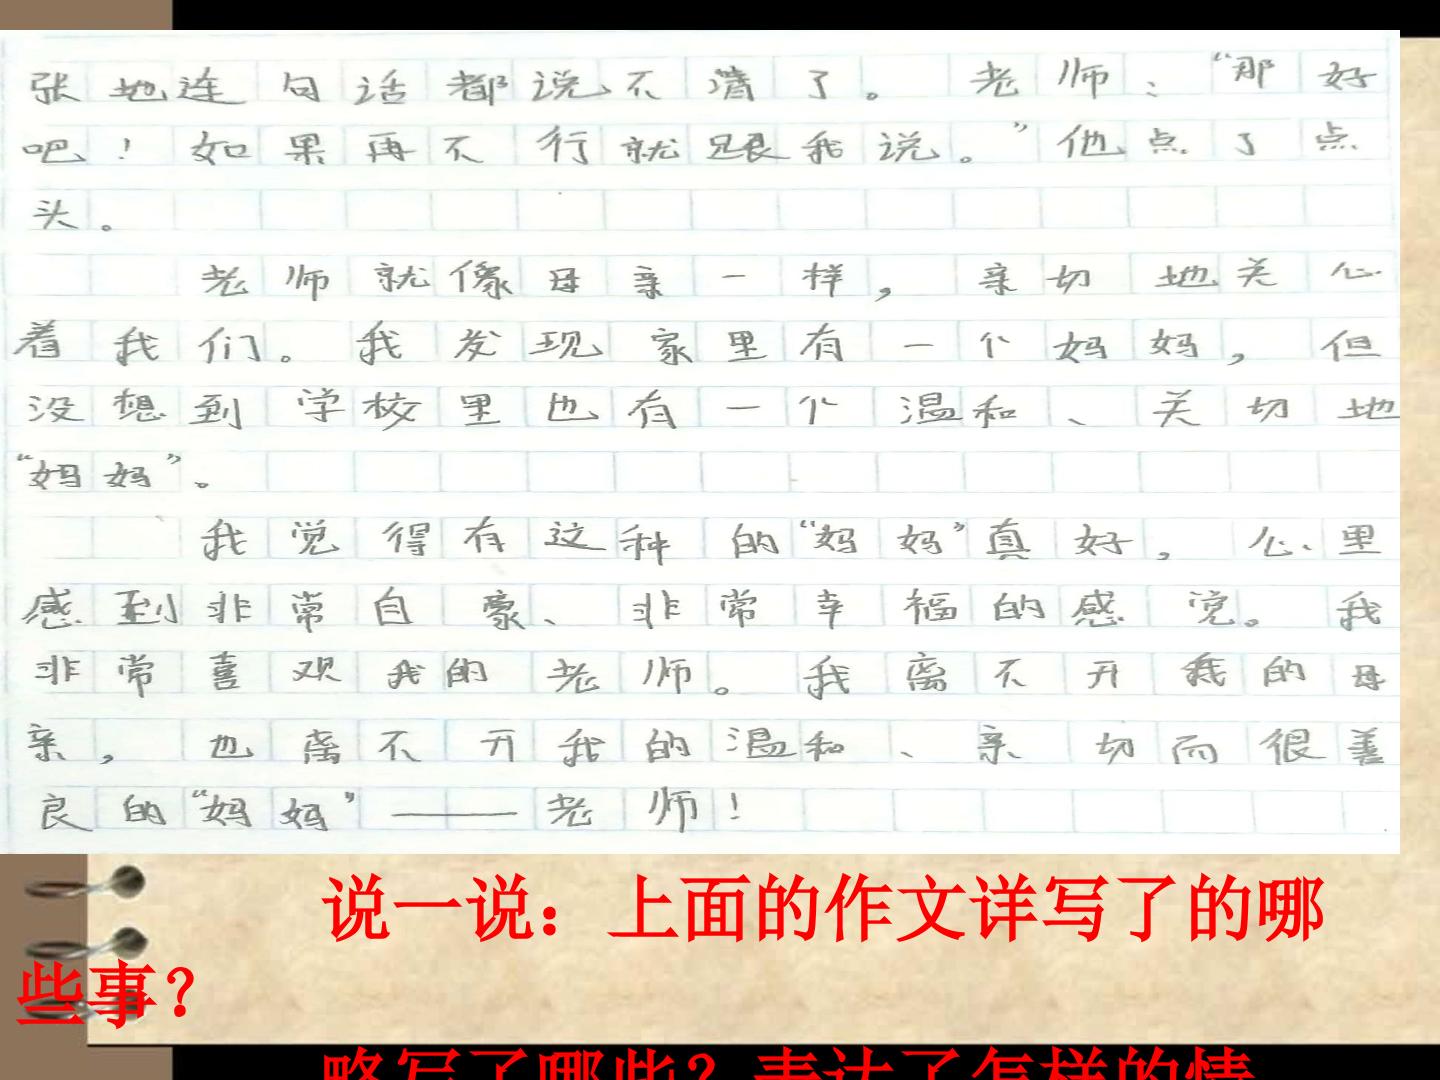 张地连句话都说不清了。老师：“那好
吧！如果再不行就跟我说。”他点了点
头。
老师就像母亲一样，亲切地关心
着我们。我发现家里有一个妈妈，但
没想到学校里也有一个温和、关切地
“妈妈”。
我觉得有这种的“妈妈”真好，心里
感到非常自豪、非常幸福的感觉。我
非常喜欢我的老师。我离不开我的母
亲，也离不开我的温和、亲切而很善
良的“妈妈”——老师！
说一说：上面的作文详写了的哪
些事？
略写了哪些？表达了怎样的情